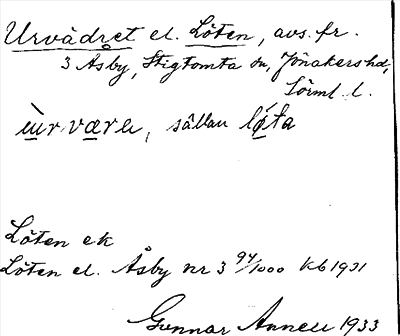 Urvädret el. Löten, avs. fr.
3 Åsby, Stigtomta sn, Jönåkers hd,
Sörml. l.
ùrværu, sällan lǿta
Löten ek
Löten el. Åsby nr 3 94/1000 Kb 1931
Gunnar Annell 1933